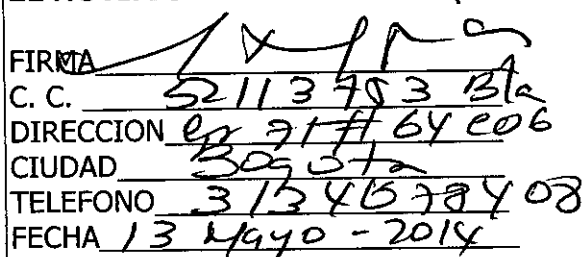 FIRMA
C. C. 52113753 Bta
DIRECCION Cr 71 # 64 C06
CIUDAD Bogota
TELEFONO
FECHA 13 Mayo - 2014